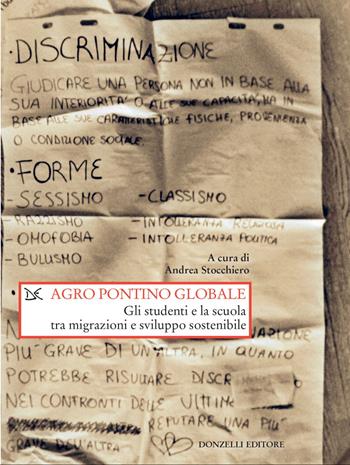 • DISCRIMINAZIONE
GIUDICARE UNA PERSONA NON IN BASE ALLA
SUA INTERIORITA' O ALLE SUE CAPACITA', MA IN
BASE ALLE SUE CARATTERISTICHE FISICHE, PROVENIENZA
O CONDIZIONE SOCIALE.
• FORME
- SESSISMO - CLASSISMO
- RAZZISMO - INTOLLERANZA RELIGIOSA
- OMOFOBIA - INTOLLERANZA POLITICA
- BULLISMO
A cura di
Andrea Stocchiero
AGRO PONTINO GLOBALE
Gli studenti e la scuola
tra migrazioni e sviluppo sostenibile
PIU' GRAVE DI UN'ALTRA, IN QUANTO
POTREBBE RISULTARE DISCR
NEI CONFRONTI DELLE VITTIME
REPUTARE UNA PIU'
GRAVE DELL'ALTRA
DONZELLI EDITORE